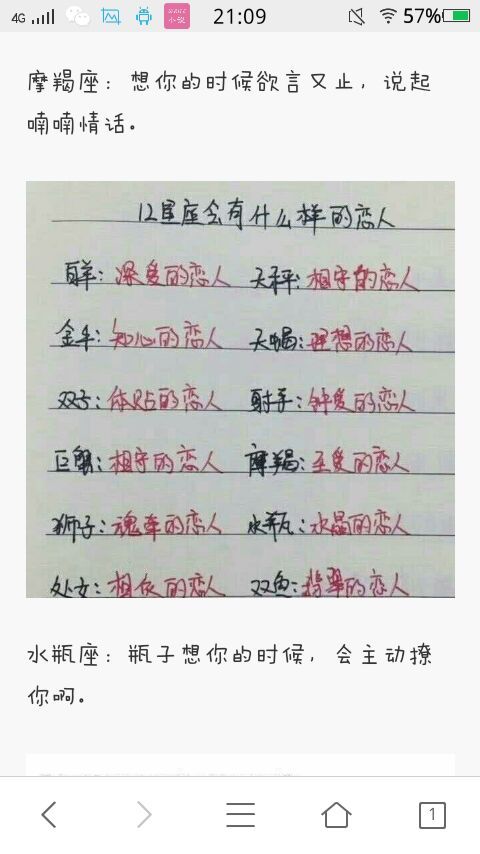 4G 21:09 57%
摩羯座：想你的时候欲言又止，说起
喃喃情话。
12星座会有什么样的恋人
白羊：深爱的恋人 天秤：相守的恋人
金牛：知心的恋人 天蝎：理想的恋人
双子：体贴的恋人 射手：钟爱的恋人
巨蟹：相守的恋人 摩羯：至爱的恋人
狮子：魂牵的恋人 水瓶：水晶的恋人
处女：相依的恋人 双鱼：翡翠的恋人
水瓶座：瓶子想你的时候，会主动撩
你啊。
1